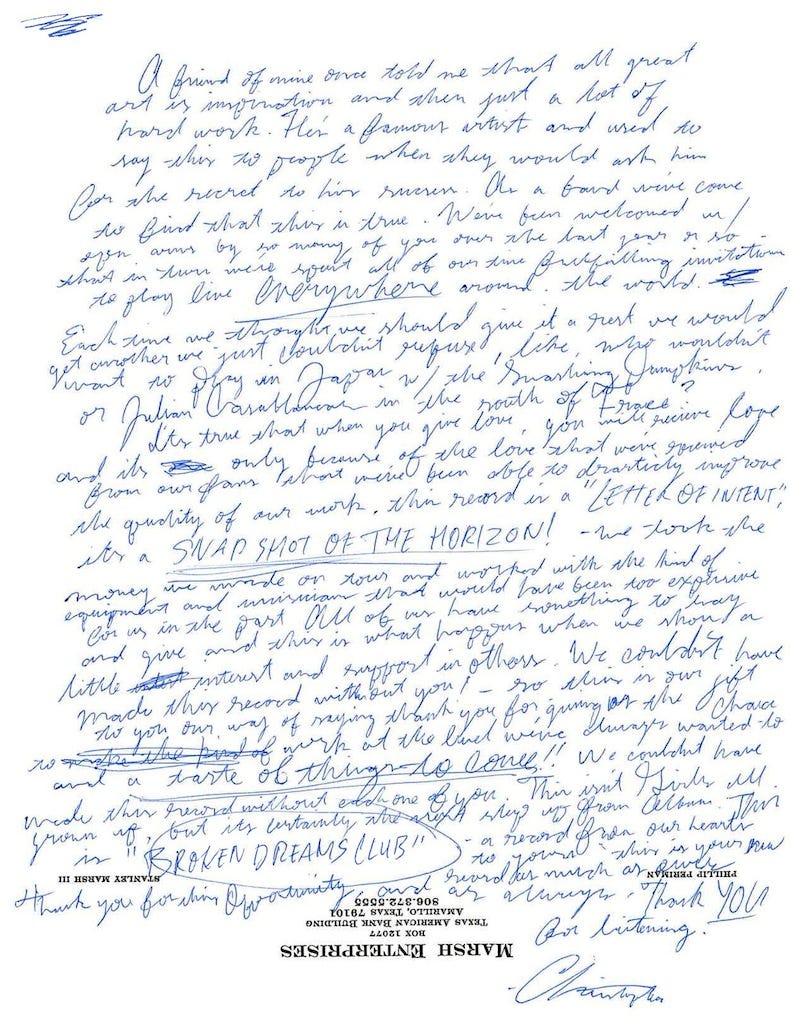 A friend of mine once told me that all great
art is inspiration and then just a lot of
hard work. He's a famous artist and used to
say this to people when they would ask him
for the secret to his success. As a band we've come
to find that this is true. We've been welcomed w/
open arms by so many of you over the last year or so -
that in turn we've spent all of our time fulfilling invitations
to play live Everywhere around the world.
Each time we thought we should give it a rest we would
get another we just couldn't refuse, like, who wouldn't
want to play in Japan w/ the Smashing Pumpkins,
or Julian Casablancas in the south of France?
It's true that when you give love, you will recieve love
and its only because of the love that we've recieved
from our fans that we've been able to drasticly improve
the quality of our work. this record is a "LETTER OF INTENT",
its a SNAP SHOT OF THE HORIZON! - we took the
money we made on tour and worked with the kind of
equipment and musicians that would have been too expensive
for us in the past. All of us have something to say
and give and this is what happens when we show a
little interest and support in others. We couldn't have
made this record without you! - so this is our gift
to you our way of saying thank you for giving us the chance
to make the kind of work at the level we've always wanted to
and a taste of things to come!! We couldn't have
made this record without each one of you. This isn't Girls all
grown up, but its certainly the next step up from Album. This
is "BROKEN DREAMS CLUB" - a record from our hearts
to yours - this is your
record as much as ours
Thank you for this Opportunity, and as always, Thank YOU
for listening.
- Christopher
MARSH ENTERPRISES
BOX 12077
TEXAS AMERICAN BANK BUILDING
AMARILLO, TEXAS 79101
806.372.5555
PHILLIP PERIMAN
STANLEY MARSH III